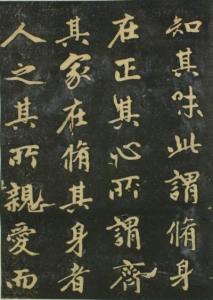 知其味此謂脩身
在正其心所謂齊
其家在脩其身者
人之其所親愛而